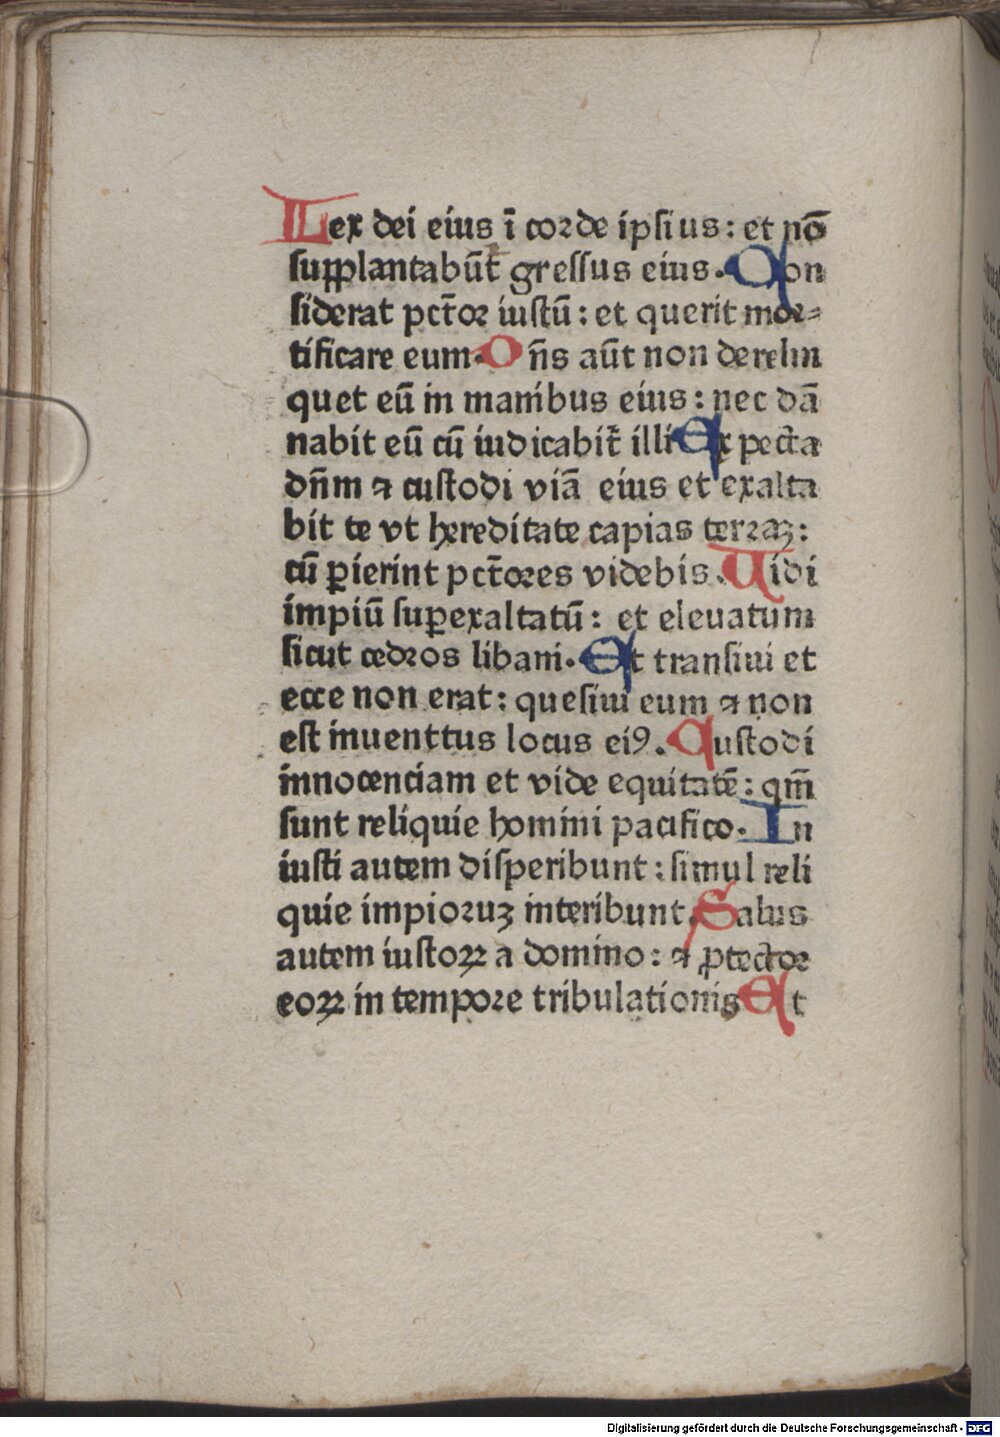 Lex dei eius ī corde ipsius: et nō
supplantabūt̄ gressus eius. Con
siderat pct̄or iustū: et querit mor⸗
tificare eum. Dn̄s aūt non derelin
quet eū in manibus eius: nec dā
nabit eū cū iudicabit̄ illi Expecta
dn̄m ⁊ custodi viā eius et exalta
bit te vt hereditate capias terraꝫ:
cū ꝑierint pct̄ores videbis. Uidi
impiū suꝑexaltatū: et eleuatum
sicut cedros libani. Et transiui et
ecce non erat: quesiui eum ⁊ non
est inuenttus locus eiꝰ. Custodi
innocenciam et vide equitatē: qm̄
sunt reliquie homini pacifico. In
iusti autem disperibunt: simul reli
quie impioruꝫ interibunt. Salus
autem iustoꝝ a domino: ⁊ ꝓtector
eoꝝ in tempore tribulationis Et
Digitalisierung gefördert durch die Deutsche Forschungsgemeinschaft - DFG